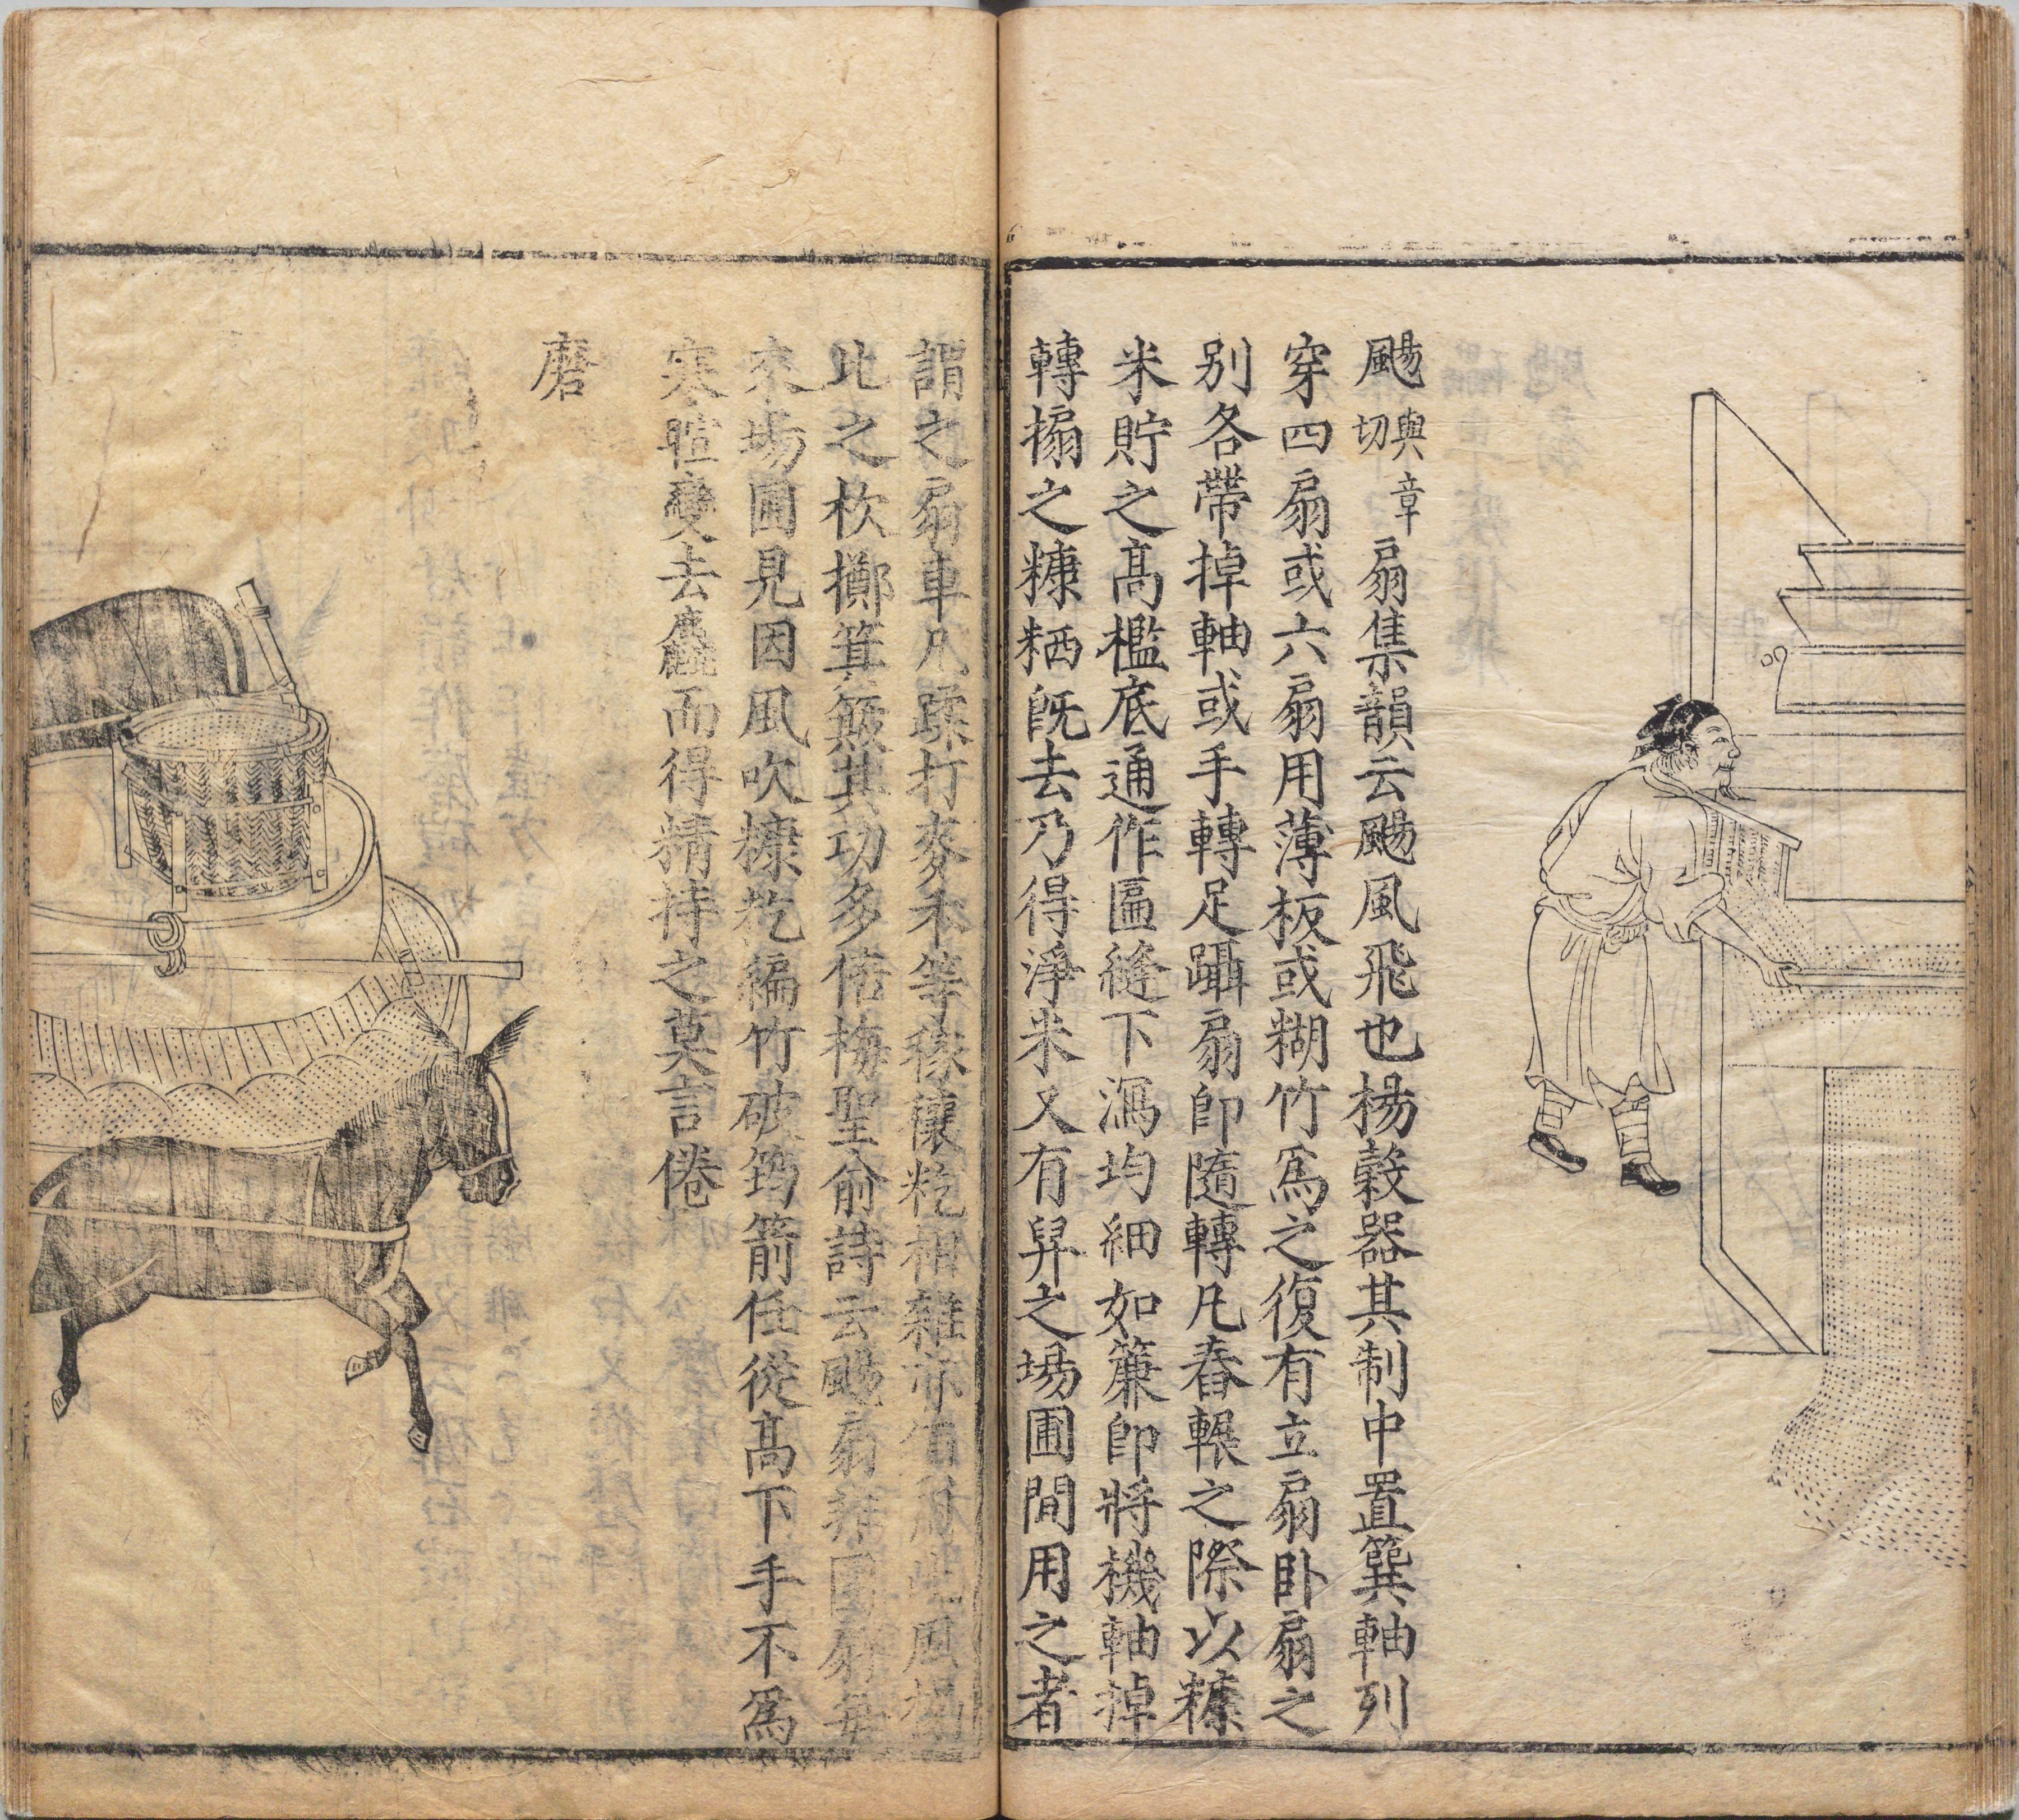 颺與章切扇集韻云颺風飛也揚穀器其制中置簨軸列
穿四扇或六扇用薄板或糊竹爲之復有立扇卧扇之
别各帶掉軸或手轉足躡扇卽隨轉凡舂輾之際以糠
米貯之髙檻底通作匾縫下瀉均細如簾卽將機軸掉
轉搧之糠粞旣去乃得淨米又有舁之場圃間用之者
謂之扇車凡蹂打麥禾等稼穰籺相雜亦須用此風揚
比之杴擲箕簸其功多倍梅聖俞詩云颺扇非團扇每
來場圃見因風吹糠籺編竹破筠箭任從髙下手不爲
寒暄變去麤而得精持之莫言倦
磨